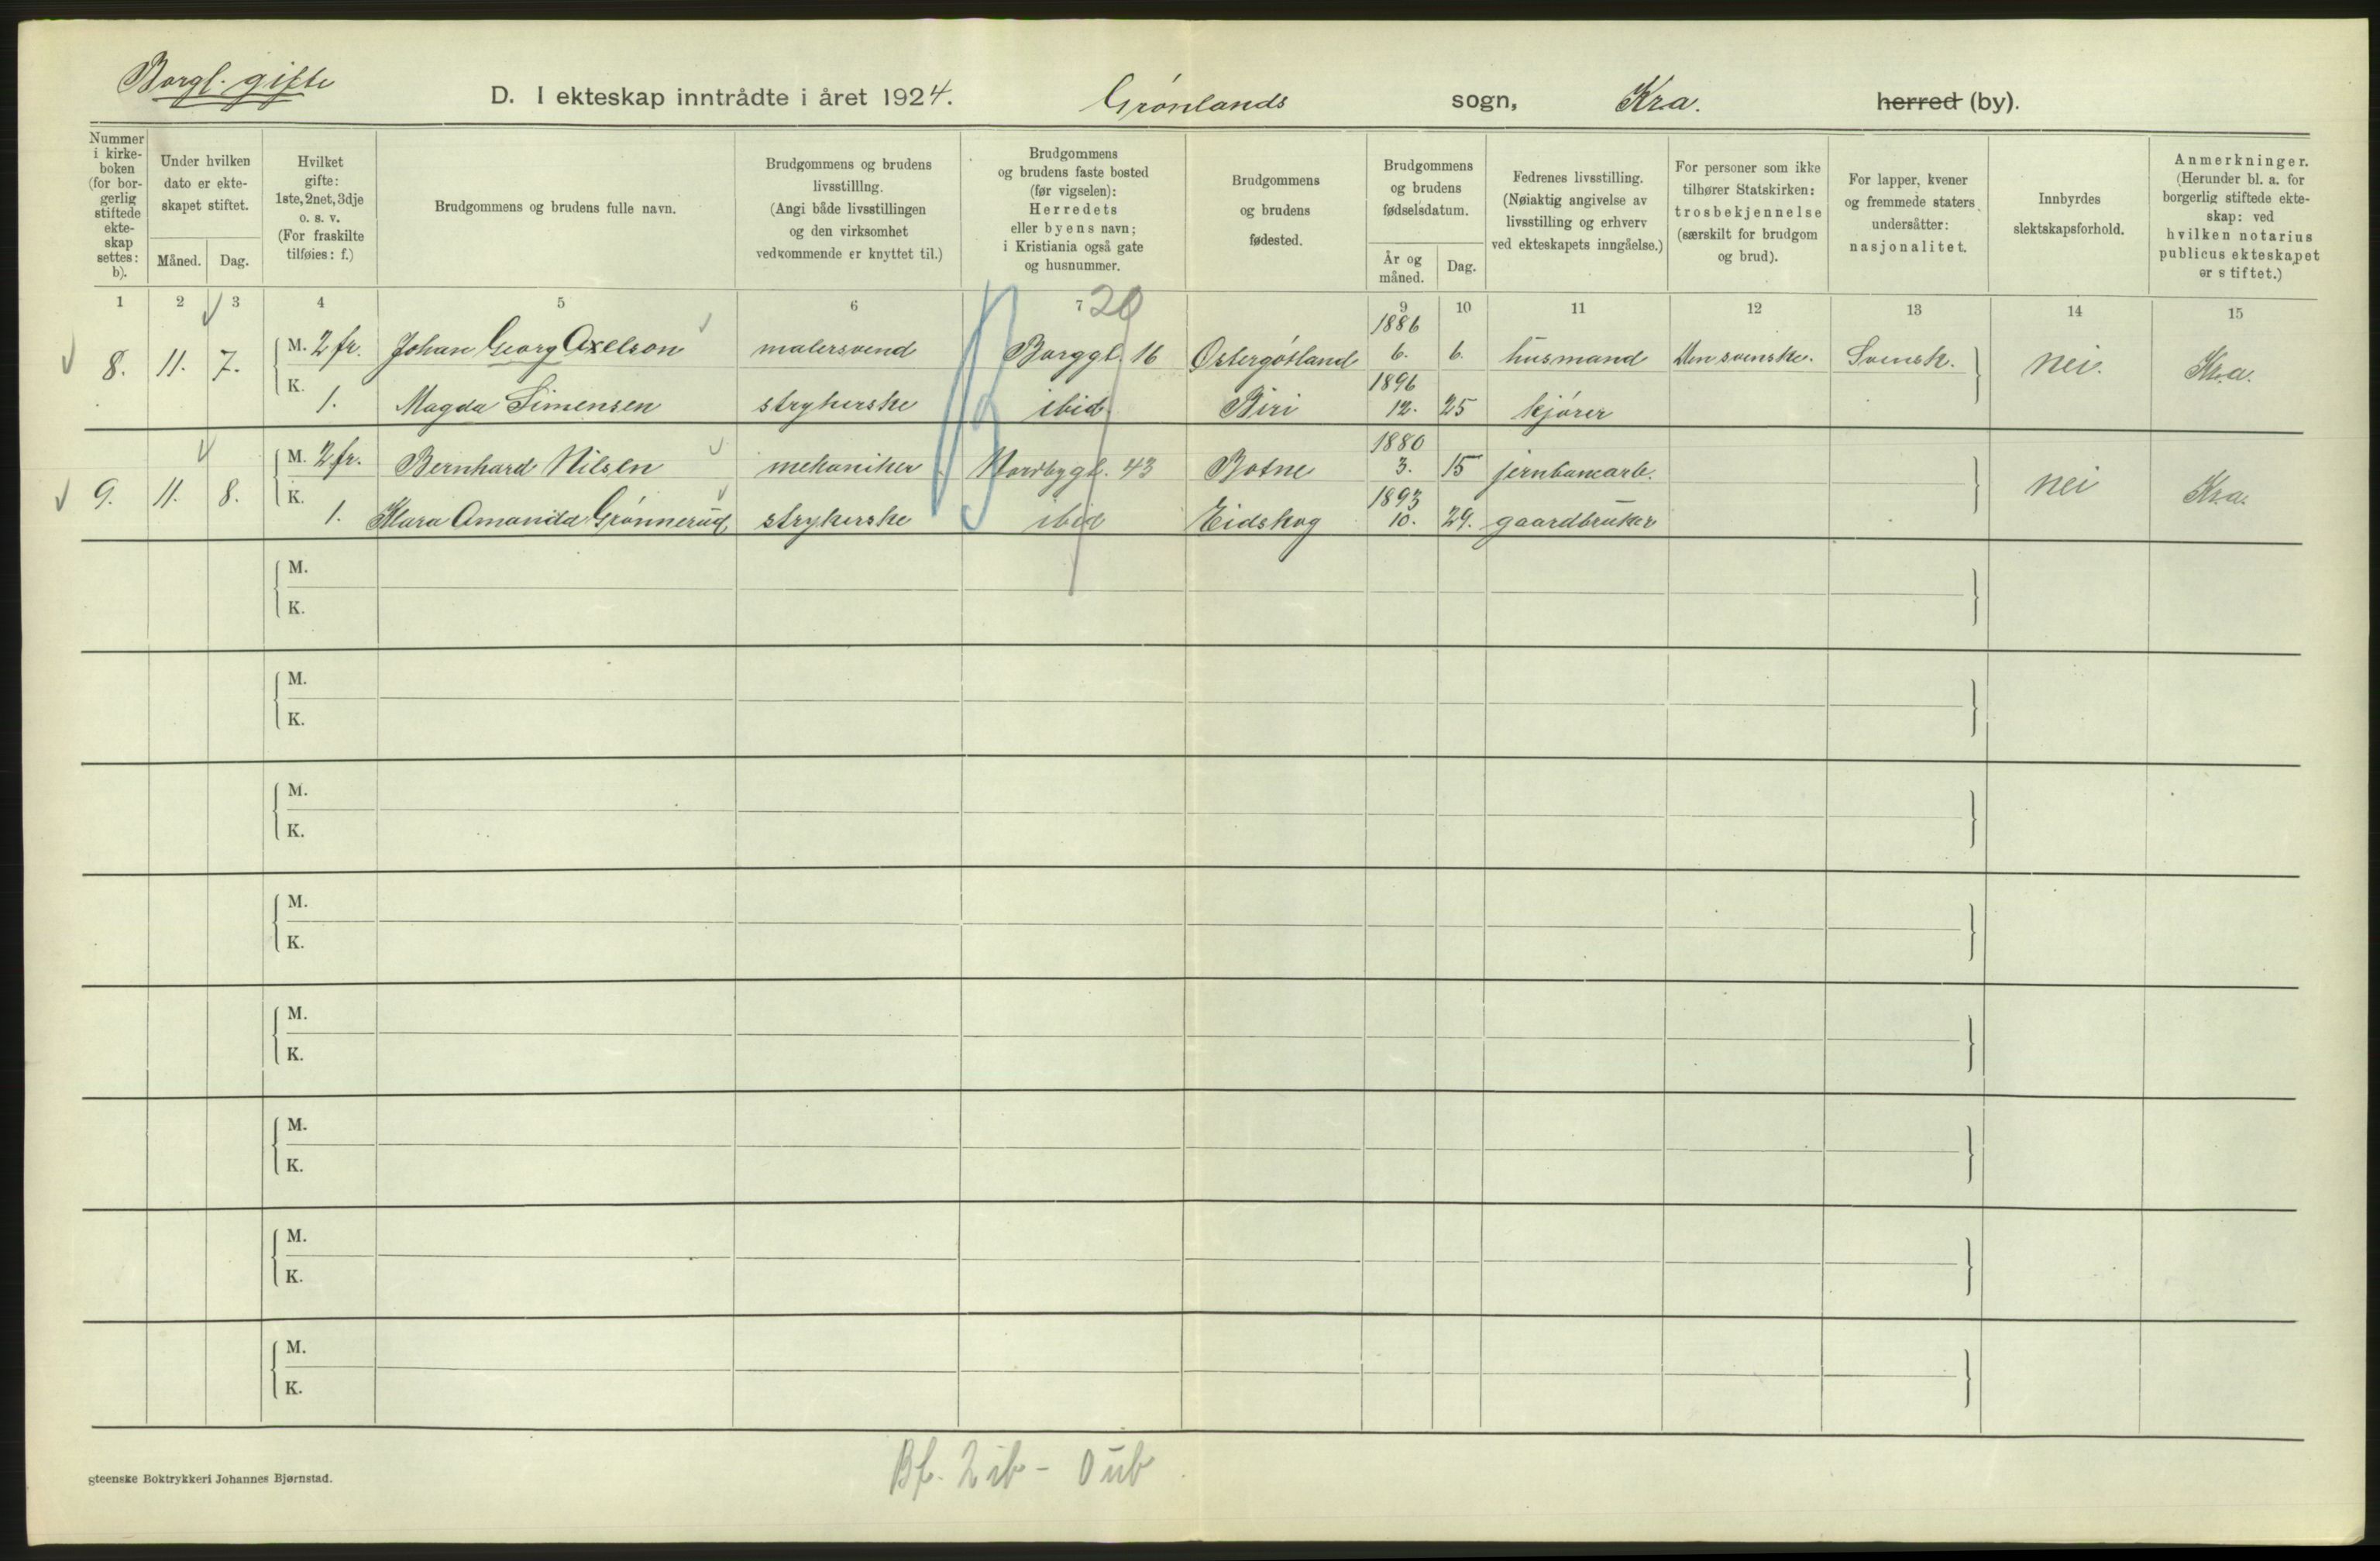 Borgl. gifte
D. I ekteskap inntrådte i året 1924. Grønlands sogn, Kra. herred (by).
Nummer i kirke-boken (for bor-gerlig stiftede ekte-skap settes: b).
Under hvilken dato er ekte-skapet stiftet.
Måned. Dag.
Hvilket gifte: 1ste, 2net, 3dje o. s. v. (For fraskilte tilføies: f.)
Brudgommens og brudens fulle navn.
Brudgommens og brudens livsstilling. (Angi både livsstillingen og den virksomhet vedkommende er knyttet til.)
Brudgommens og brudens faste bosted (før vigselen): Herredets eller byens navn; i Kristiania også gate og husnummer.
Brudgommens og brudens fødested.
Brudgommens og brudens fødselsdatum.
År og måned. Dag.
Fedrenes livsstilling. (Nøiaktig angivelse av livsstilling og erhverv ved ekteskapets inngåelse.)
For personer som ikke tilhører Statskirken: trosbekjennelse (særskilt for brudgom og brud).
For lapper, kvener og fremmede staters undersåtter: nasjonalitet.
Innbyrdes slektskapsforhold.
Anmerkninger. (Herunder bl. a. for borgerlig stiftede ekte-skap: ved hvilken notarius publicus ekteskapet er stiftet.)
1 2 3 4 5 6 7 9 10 11 12 13 14 15
20
8. 11. 7. M. 2 fr. Johan Georg Axelson malersvend Borggt. 16 Østergøtland 1886 6. 6. husmand Den svenske. Svensk. nei. Kra.
K. 1. Magda Simensen strykerske ibid. Biri 1896 12. 25 kjører
9. 11. 8. M. 2 fr. Bernhard Nilsen mekaniker Nordbygt. 43 Botne 1880 3. 15 jernbanearb. nei Kra.
K. 1. Klara Amanda Grønnerud strykerske ibid Eidskog 1893 10. 29. gaardbruker
M.
K.
M.
K.
M.
K.
M.
K.
M.
K.
M.
K.
M.
K.
M.
K.
Bf. 2 ib - 0 ub
gteenske Boktrykkeri Johannes Bjørnstad.